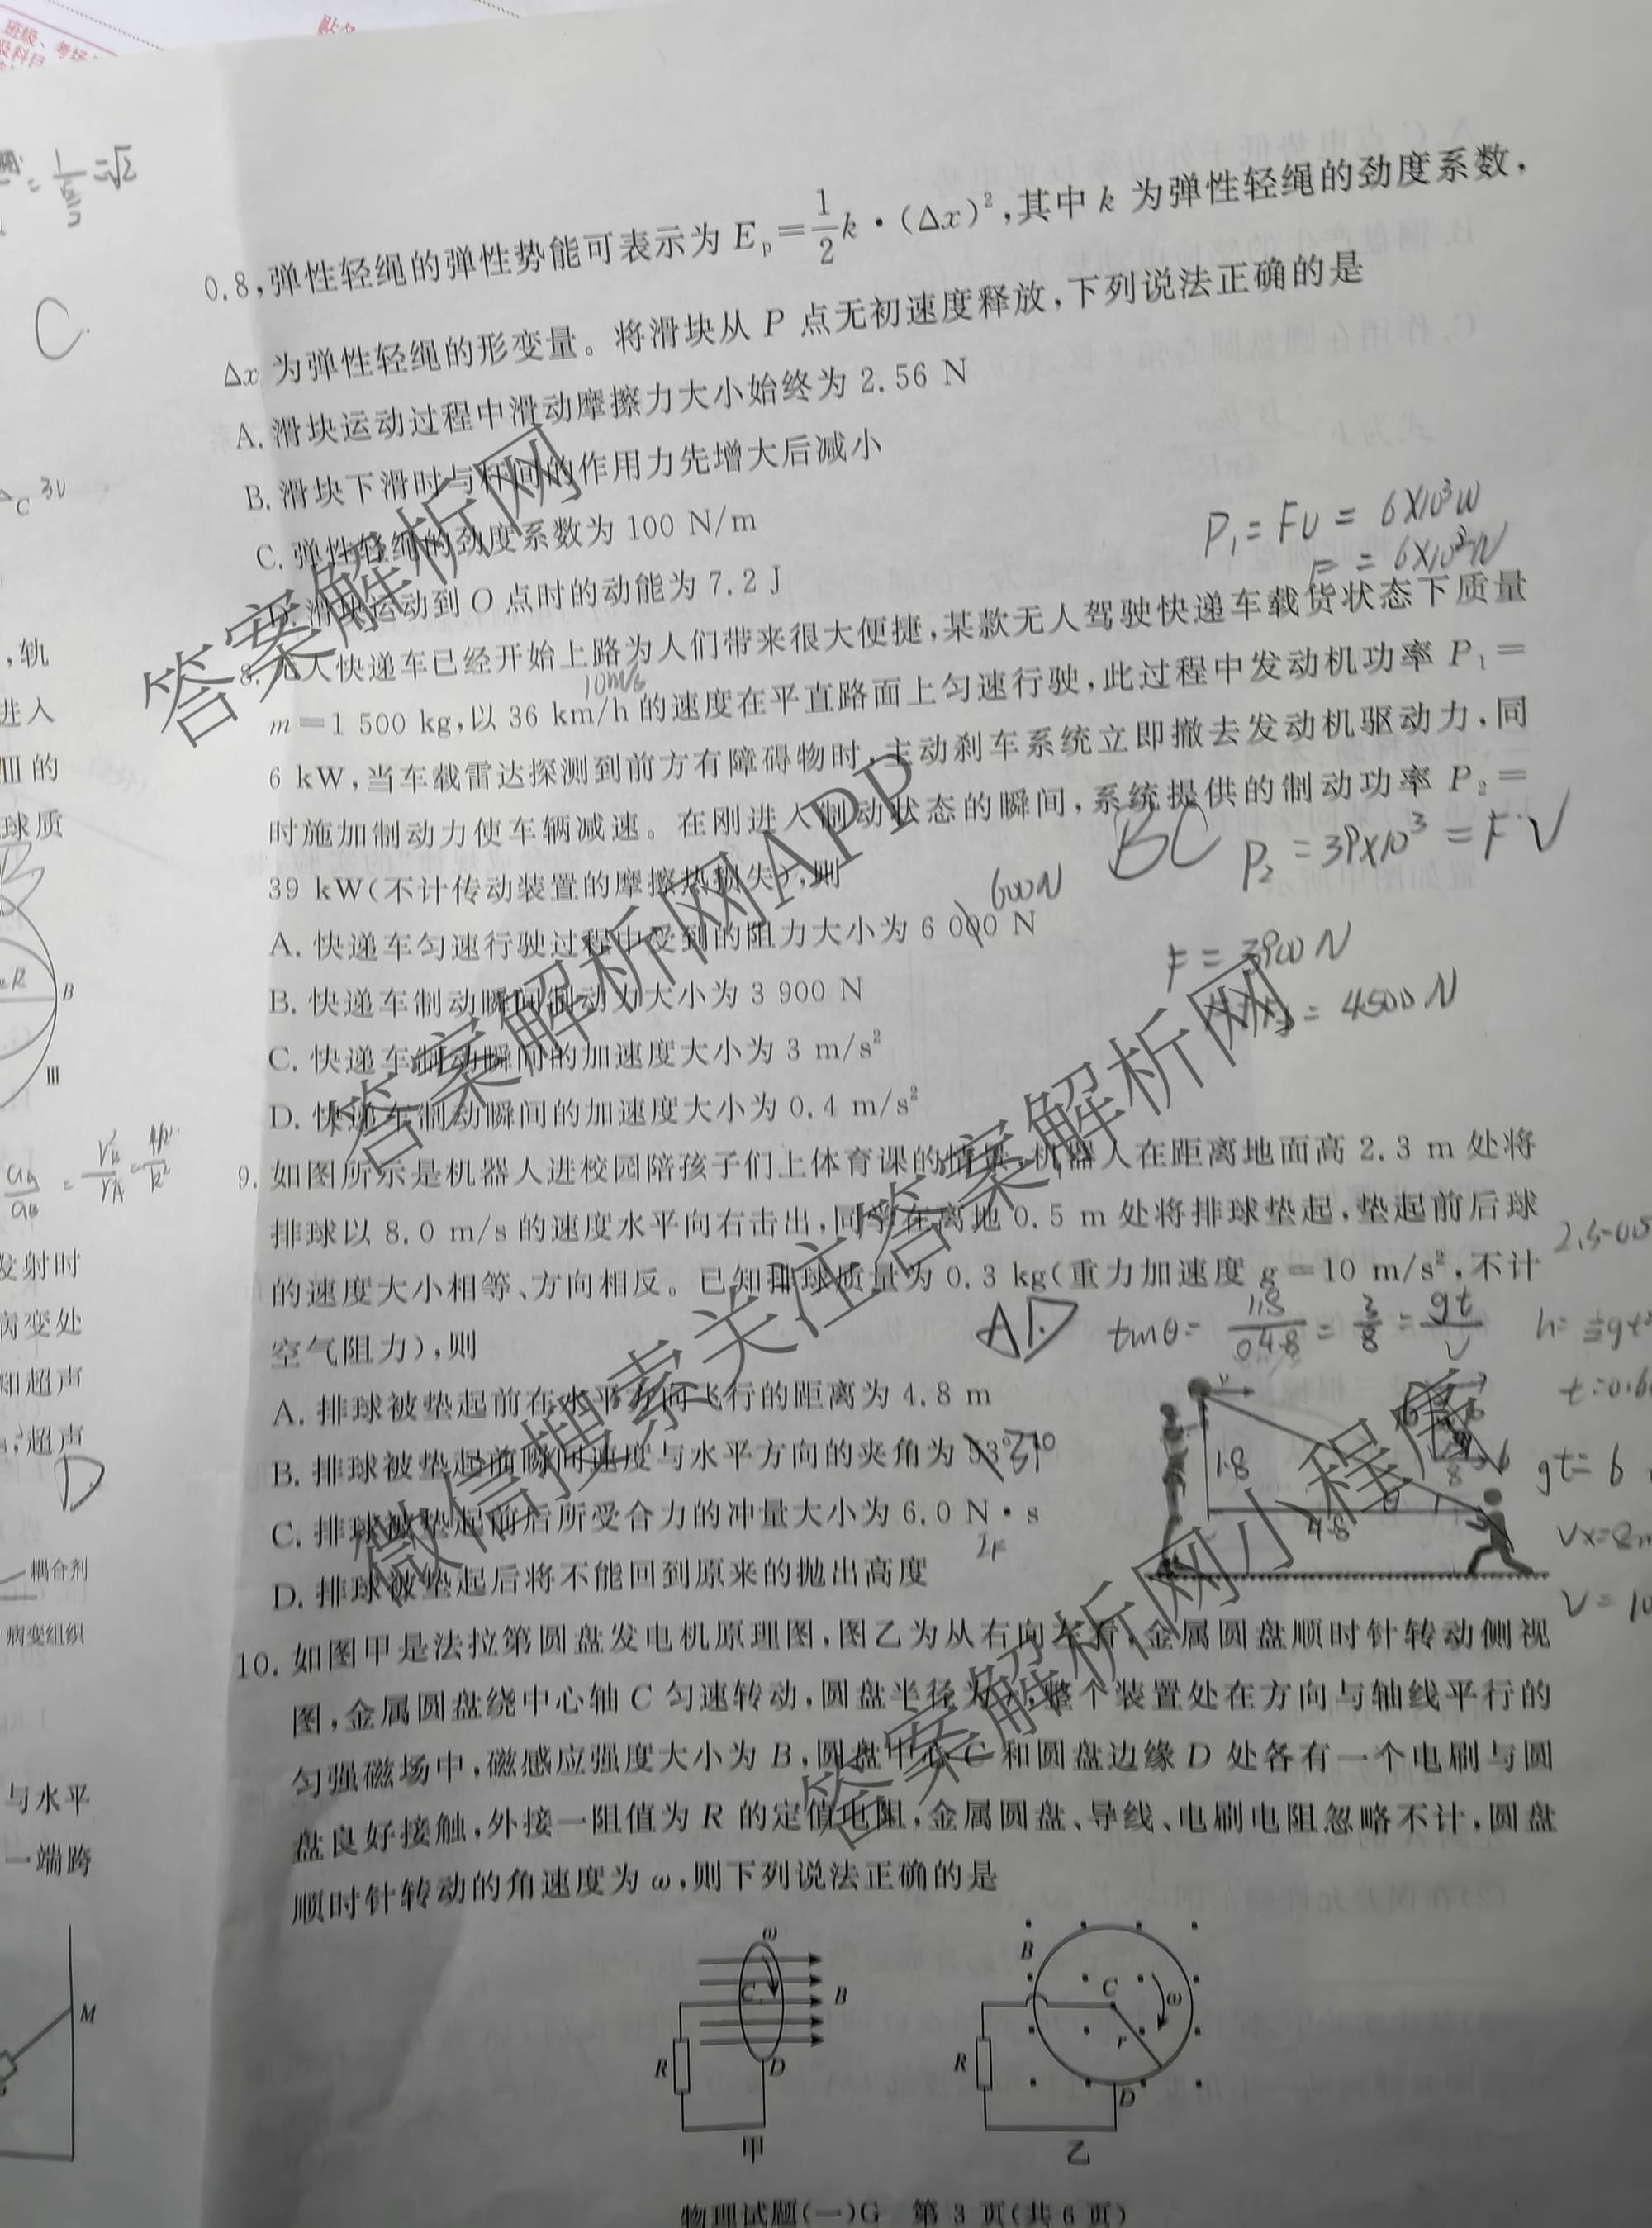 0.8,弹性轻绳的弹性势能可表示为 Eₚ=1/2 k·(Δx)²,其中 k 为弹性轻绳的劲度系数,
Δx 为弹性轻绳的形变量。将滑块从 P 点无初速度释放,下列说法正确的是
A. 滑块运动过程中滑动摩擦力大小始终为 2.56 N
B. 滑块下滑时与杆间的作用力先增大后减小
C. 弹性轻绳的劲度系数为 100 N/m
D. 滑块运动到 O 点时的动能为 7.2 J
P₁=Fv=6×10³W
F=6×10²N
8. 无人快递车已经开始上路为人们带来很大便捷,某款无人驾驶快递车载货状态下质量
10m/s
m=1 500 kg,以 36 km/h 的速度在平直路面上匀速行驶,此过程中发动机功率 P₁=
6 kW,当车载雷达探测到前方有障碍物时,主动刹车系统立即撤去发动机驱动力,同
时施加制动力使车辆减速。在刚进入制动状态的瞬间,系统提供的制动功率 P₂=
39 kW(不计传动装置的摩擦热损失),则
BC P₂=39×10³=F·V
600N
A. 快递车匀速行驶过程中受到的阻力大小为 6 000 N
F=3900N
B. 快递车制动瞬间制动力大小为 3 900 N
=4500N
C. 快递车制动瞬间的加速度大小为 3 m/s²
D. 快递车制动瞬间的加速度大小为 0.4 m/s²
9. 如图所示是机器人进校园陪孩子们上体育课的情景,机器人在距离地面高 2.3 m 处将
排球以 8.0 m/s 的速度水平向右击出,同学在离地 0.5 m 处将排球垫起,垫起前后球
的速度大小相等、方向相反。已知排球质量为 0.3 kg(重力加速度 g=10 m/s²,不计
空气阻力),则
AD
A. 排球被垫起前在水平方向飞行的距离为 4.8 m
B. 排球被垫起前瞬间速度与水平方向的夹角为 53°
C. 排球被垫起前后所受合力的冲量大小为 6.0 N·s
D. 排球被垫起后将不能回到原来的抛出高度
v
1.8
4.8
gt=6
10. 如图甲是法拉第圆盘发电机原理图,图乙为从右向左看,金属圆盘顺时针转动侧视
图,金属圆盘绕中心轴 C 匀速转动,圆盘半径为 r,整个装置处在方向与轴线平行的
匀强磁场中,磁感应强度大小为 B,圆盘中心 C 和圆盘边缘 D 处各有一个电刷与圆
盘良好接触,外接一阻值为 R 的定值电阻,金属圆盘、导线、电刷电阻忽略不计,圆盘
顺时针转动的角速度为 ω,则下列说法正确的是
ω
C
B
R
D
甲
B
C
ω
r
R
D
乙
物理试题(一)G 第 3 页(共 6 页)
C
,轨
进入
Ⅲ的
球质
B
Ⅲ
发射时
病变处
知超声
超声
D
耦合剂
病变组织
与水平
一端跨
M
答案解析网
答案解析网APP
微信搜索关注答案解析网
答案解析网小程序